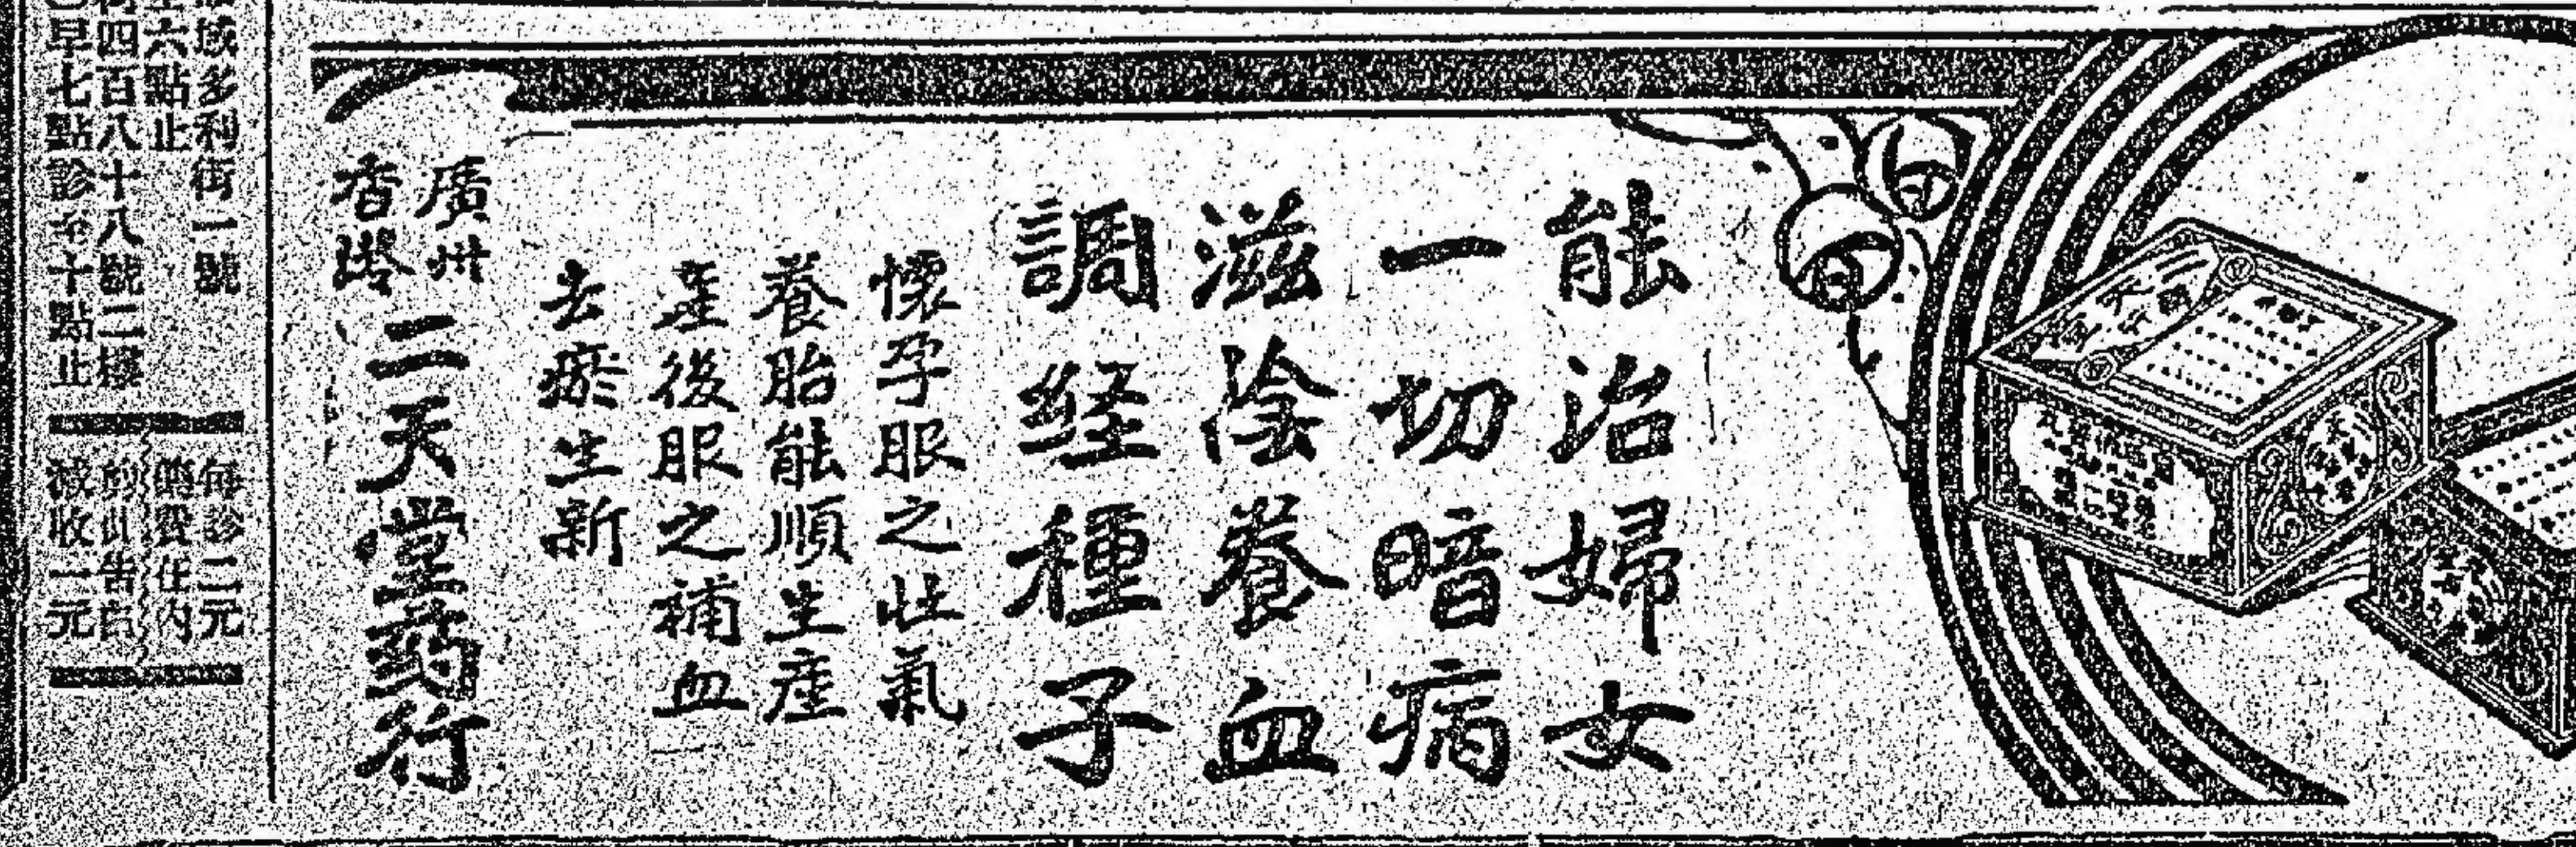 能治婦女
一切暗病
滋陰養血
調経種子
懷孕服之壯氣
養胎能順生產
產後服之補血
去瘀生新
廣州
香港
二天堂药行
域多利街一號
六點止
四百八十八號二樓
早七點診至十點止
每診二元
贈費在內
剪此告白
減收一元